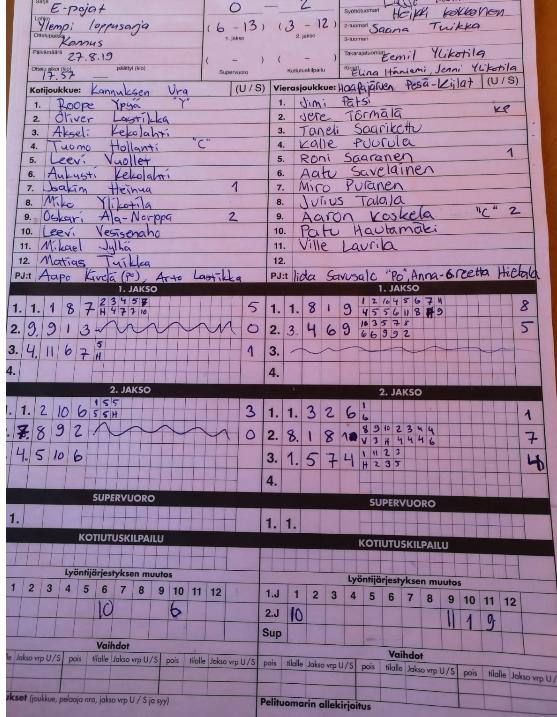 Sarja
E-pojat
0 - 2
Heikki Kokkonen
Ylempi loppusarja
(6 - 13) (3 - 12)
1. jakso 2. jakso
2-tuomari Saana Tuikka
Kannus
3-tuomari
Päivämäärä 27.8.19
( - ) ( - )
Takarajatuomari Eemil Ylikotila
17.57 päättyi (klo)
Supervuoro Kotiutuskilpailu
Elina Hänismi Jenni Ylikotila
Kotijoukkue: Kannuksen Ura (U / S)
1. Roope Ypyä "Y"
2. Oliver Lastikka
3. Akseli Kekolahti
4. Tuomo Hollanti "C"
5. Leevi Vuollet
6. Aukusti Kekolahti
7. Joakim Heinua 1
8. Miko Ylikotila
9. Oskari Ala-Norppa 2
10. Leevi Vesisenaho
11. Mikael Jylhä
12. Matias Tuikka
PJ:t Aapo Kivelä (PJ), Arto Lastikka
Vierasjoukkue: Haapajärven Pesä-Kiilat (U / S)
1. Jimi Pätsi
2. Jere Törmälä
3. Taneli Saarikettu
4. Kalle Puurula
5. Roni Saaranen 1
6. Aatu Savelainen
7. Miro Puranen
8. Julius Talaja
9. Aaron Koskela "C" 2
10. Patu Hautamäki
11. Ville Laurila
12.
PJ:t Iida Savusalo "PJ", Anna-Greetta Hietala
1. JAKSO
1. 1. 1 8 7 5
2. 9 9 1 3 0
3. 4 11 6 7 5 H 1
4.
1. JAKSO
1. 1. 8 1 9 8
2. 3. 4 6 9 5
3.
4.
2. JAKSO
1. 1. 2 10 6 1 5 5 5 5 H 3
8 9 2 0
4. 5 10 6
2. JAKSO
1. 1. 3 2 6 1 6 1
2. 8. 1 8 7
3. 1. 5 7 4 1 11 2 3 H 2 3 5 4
4.
SUPERVUORO
1.
SUPERVUORO
1. 1.
KOTIUTUSKILPAILU
KOTIUTUSKILPAILU
Lyöntijärjestyksen muutos
1 2 3 4 5 6 7 8 9 10 11 12
10 6
Lyöntijärjestyksen muutos
1.J 1 2 3 4 5 6 7 8 9 10 11 12
2.J 10 11 1 9
Sup
Vaihdot
Jakso vrp U / S pois tilalle Jakso vrp U / S pois tilalle Jakso vrp U / S
Vaihdot
pois tilalle Jakso vrp U / S pois tilalle Jakso vrp U / S pois tilalle Jakso vrp U / S
(joukkue, pelaaja nro, jakso vrp U / S ja syy)
Pelituomarin allekirjoitus